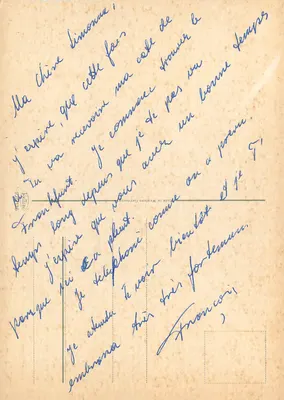 Ma chère Simonne,
J'espère, que cette fois
tu va recevoire ma carte de
Frankfurt. Je commence trouver le
temps long depuis que je te pas vu
J'espère que vous avez un bonne temps
parque ici a pleut.
Je telephone comme on a
Je attendu te voir bientôt et je t'
embrasse très très fortement
Francois,